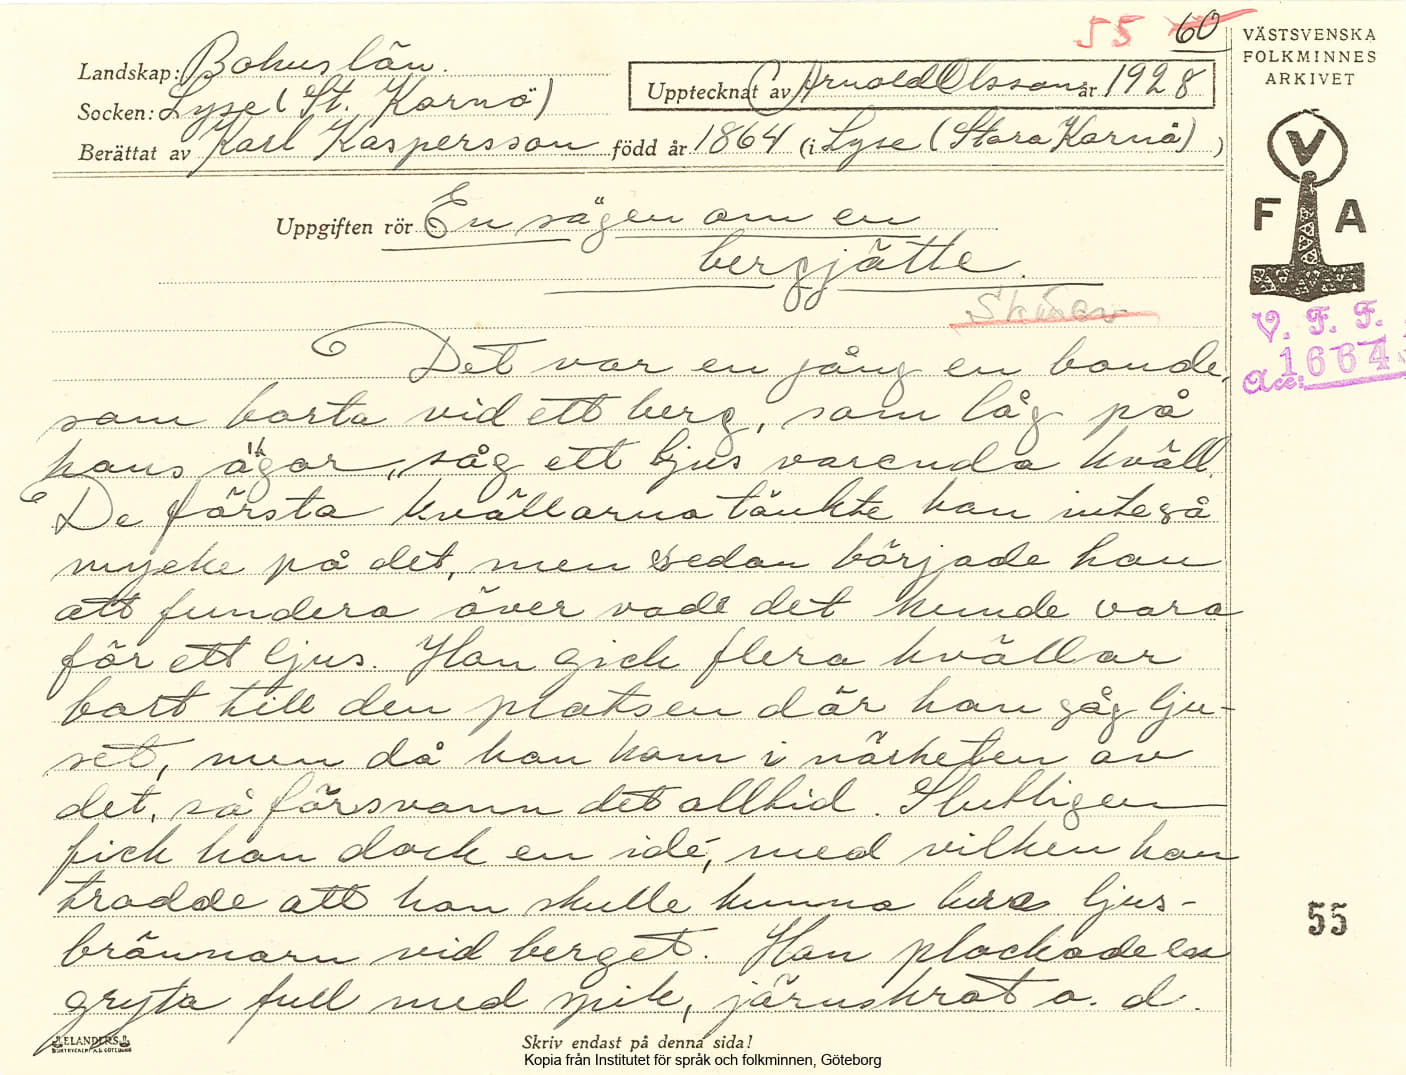 55 60
VÄSTSVENSKA
FOLKMINNES
ARKIVET
Landskap: Bohuslän.
Socken: Lyse (St. Kornö)
Upptecknat av Arnold Olsson år 1928
Berättat av Karl Kaspersson född år 1864 (i Lyse (Stora Kornö) )
V
F A
Uppgiften rör En sägen om en
bergjätte.
V. F. F.
Acc: 1664
Det var en gång en bonde,
som borta vid ett berg, som låg på
hans ägor, såg ett ljus varenda kväll.
De första kvällarna tänkte han inte så
mycke på det, men sedan började han
att fundera över vad det kunde vara
för ett ljus. Han gick flera kvällar
bort till den platsen där han såg lju-
set, men då han kom i närheten av
det, så försvann det alltid. Slutligen
fick han dock en idé, med vilken han
trodde att han skulle kunna lura ljus-
brännarn vid berget. Han plockade en
gryta full med spik, järnskrot o. d.
55
ELANDERS
BOKTRYCKERI A.B. GÖTEBORG
Skriv endast på denna sida!
Kopia från Institutet för språk och folkminnen, Göteborg